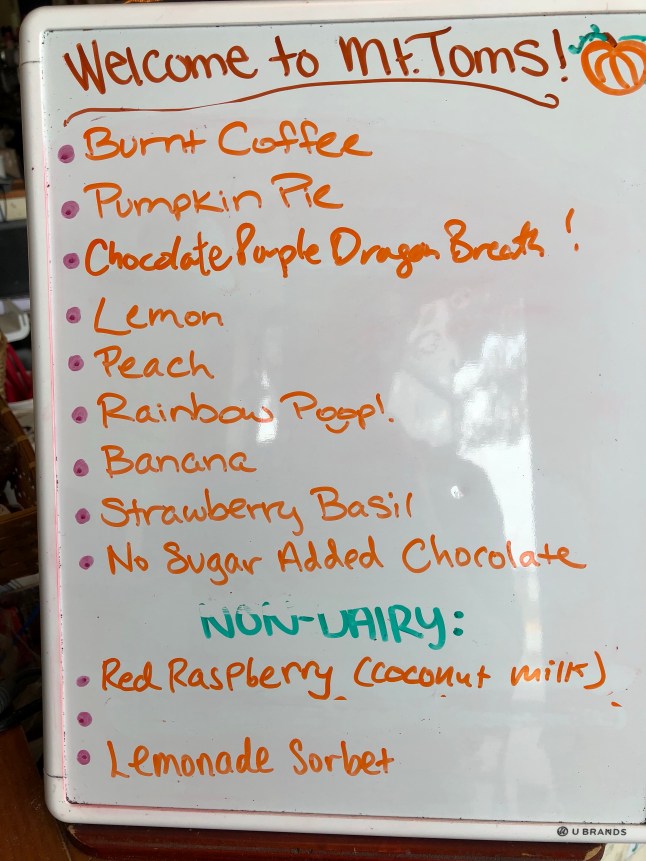 Welcome to Mt. Toms!
Burnt Coffee
Pumpkin Pie
Chocolate Purple Dragon Breath!
Lemon
Peach
Rainbow Poop!
Banana
Strawberry Basil
No Sugar Added Chocolate
NON-DAIRY:
Red Raspberry (coconut milk)
Lemonade Sorbet
U BRANDS